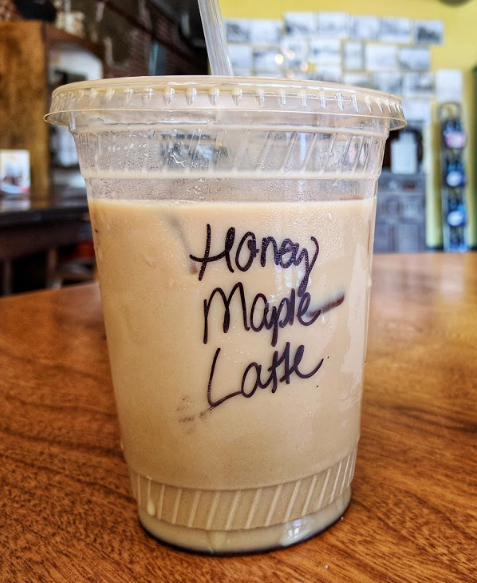 Honey
Maple
Latte